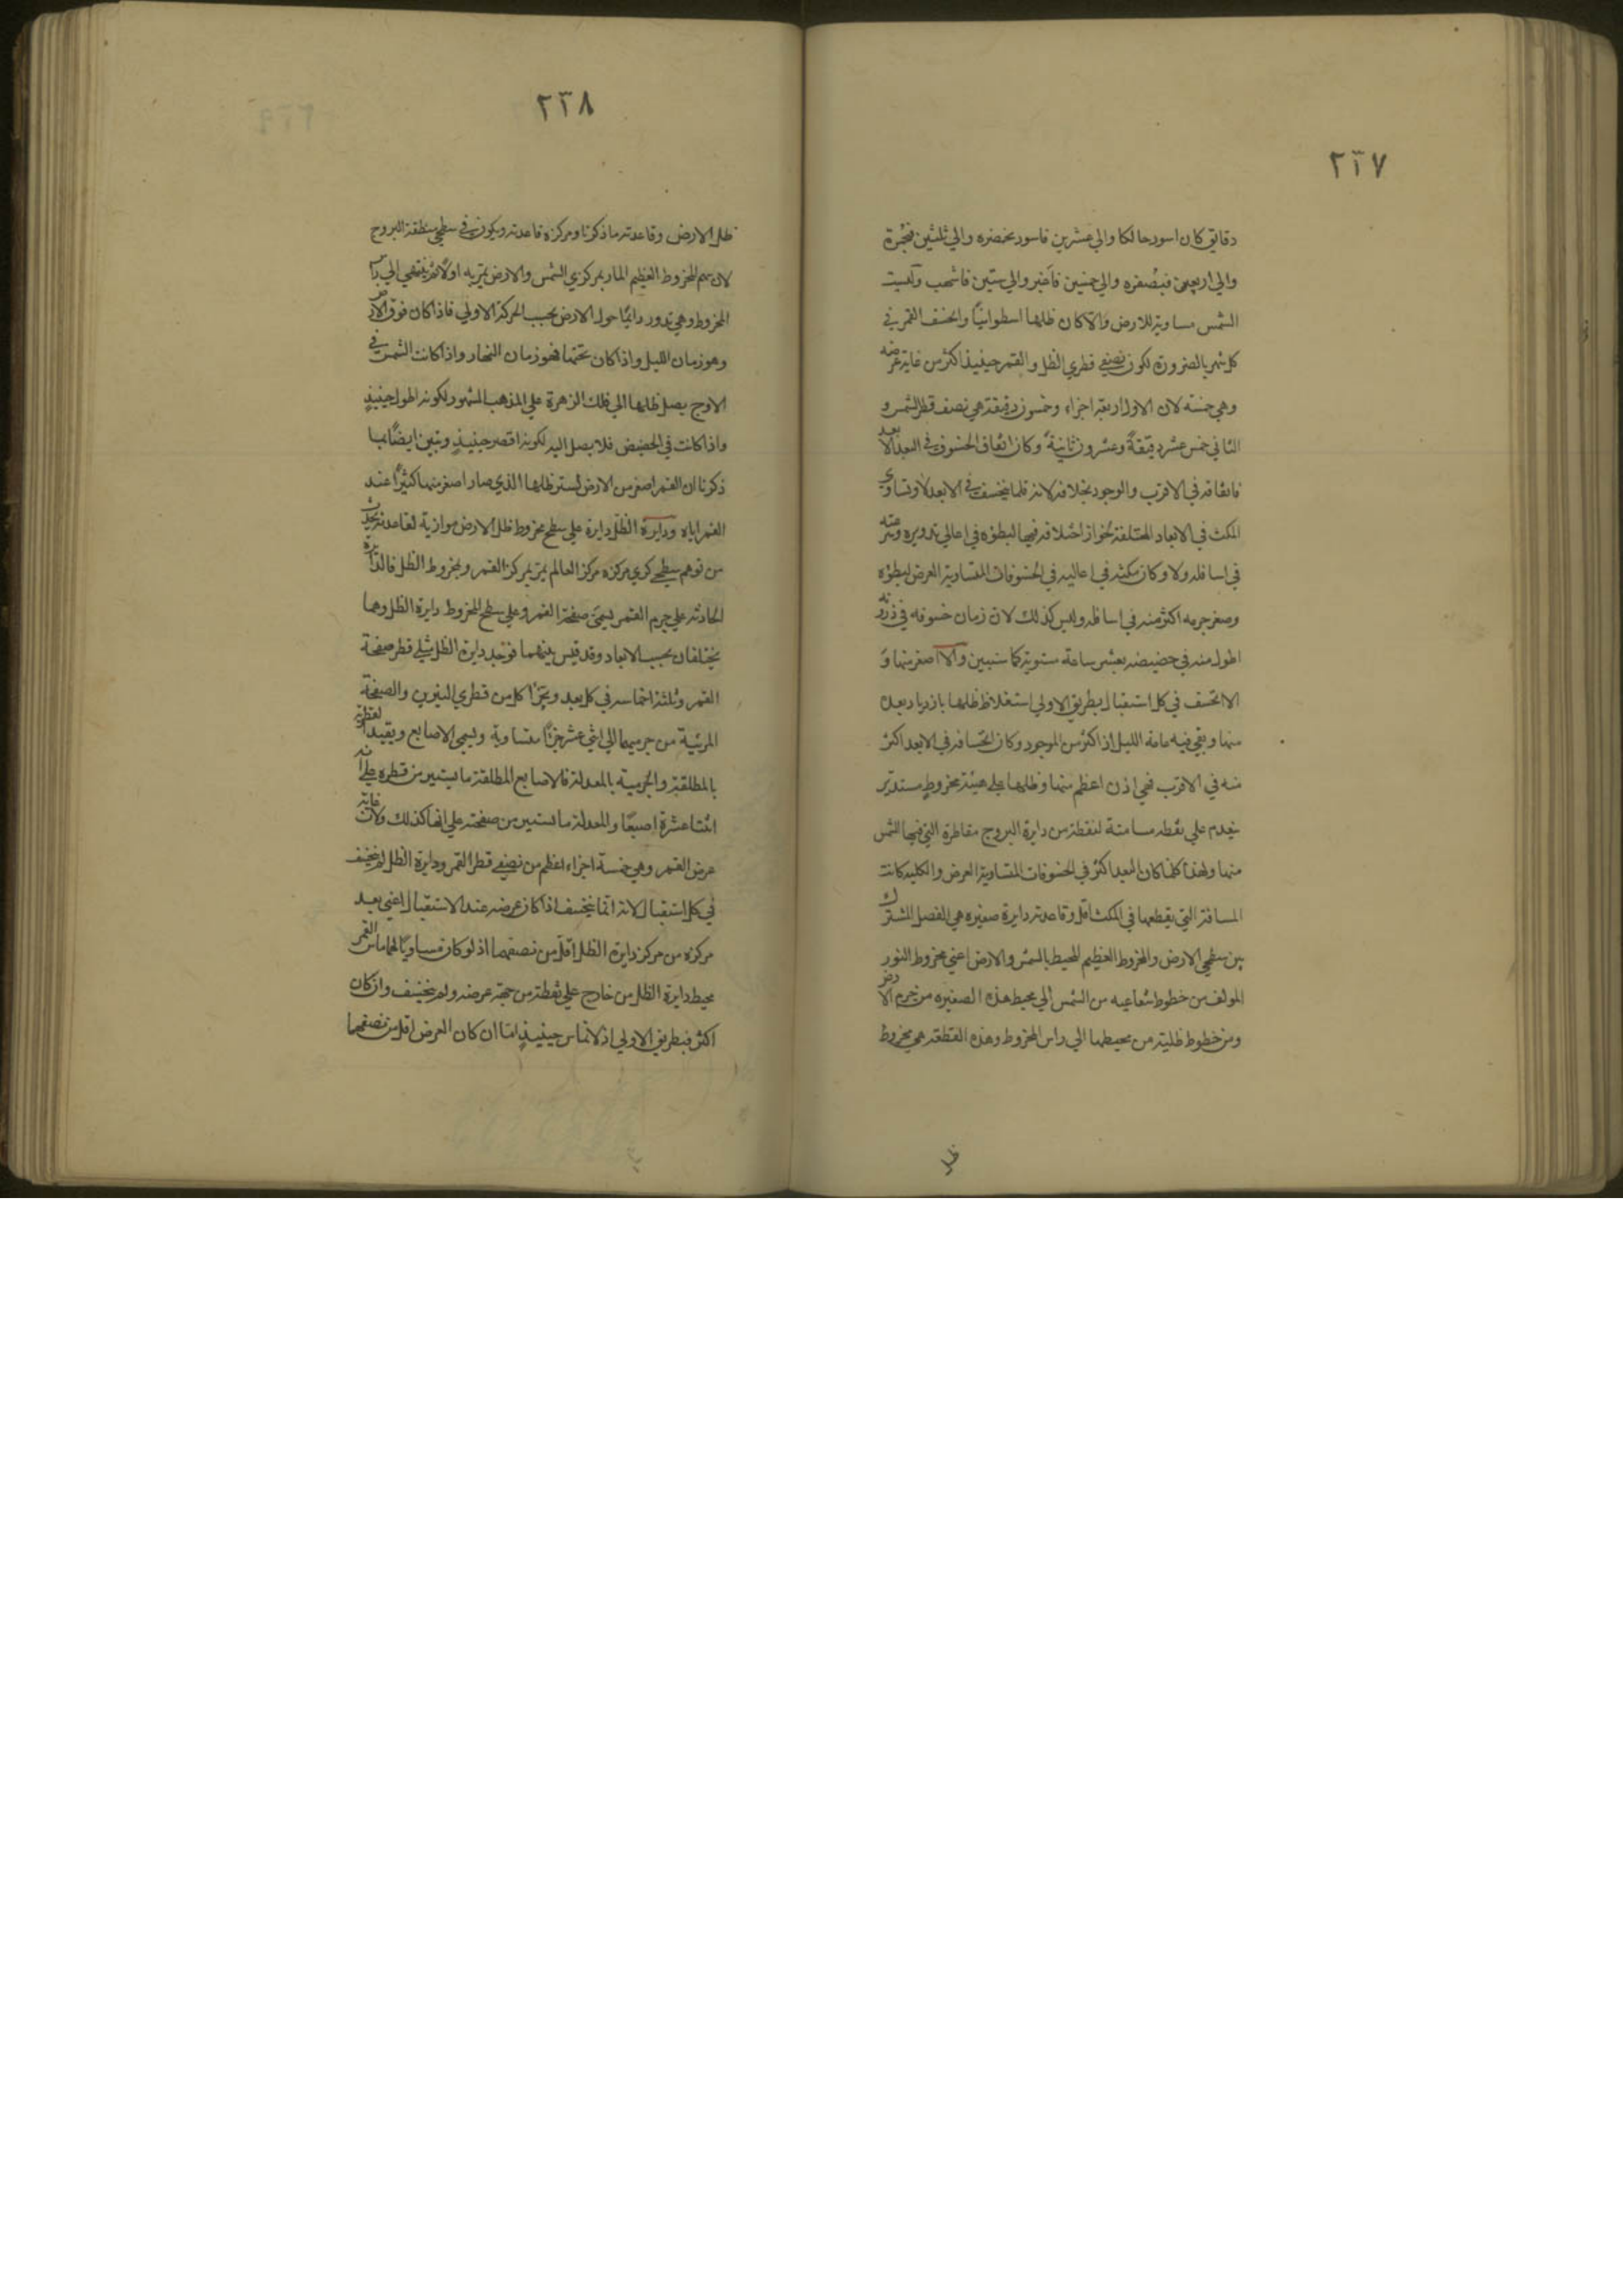 ٢٣٧
دقايق كان اسود حالكا والي عشرين فاسود بخضره والي ثلثين فبحمرة
والي اربعين فبصفره والي خمسين فاغبر والي ستين فاشهب وليست
الشمس مساوية للارض والا كان ظلها اسطوانيا وانخسف القمر في
كل شهر بالضرورة لكون نصفي قطري الظل والقمر حينيذ اكثر من غاية عرضه
وهي خمسة لان الاول اربعة اجزاء وخمسون دقيقة هي نصف قطر الشمس و
الثاني خمس عشر دقيقة وعشرون ثانية وكان اتفاق الخسوف في البعد الابعد
فاتفاقه في الاقرب والوجود بخلافه لانه قلما ينخسف في الابعد ولا وتساوي
المكث في الابعاد المختلفة لجواز اختلافه فيها لبطؤه في اعالي تدويره وسرعته
في اسافله ولا وكان مكثه في اعاليه في الخسوفات المتساوية العرض لبطؤه
وصغر جرمه اكثر منه في اسافله وليس كذلك لان زمان خسوفه في ذروته
اطول منه في حضيضه بعشر ساعة مستوية كما سنبين ولا اصغر منها و
الا انخسف في كل استقبال بطريق الاولي لاستغلاظ ظلها بازدياد بعده
منها وبقي فيه عامة الليل اذ اكثر من الموجود وكان انخسافه في الابعد اكثر
منه في الاقرب فهي اذن اعظم منها وظلها علي هيئة مخروط مستدير
ينعدم علي نقطه مسامتة لنقطة من دايرة البروج مقاطرة التي فيها الشمس
منها ولهذا كلما كان البعد اكثر في الخسوفات المتساوية العرض والكليه كانت
المسافة التي يقطعها في المكث اقل وقاعدته دايرة صغيره هي الفصل المشترك
بين سطحي الارض والمخروط العظيم المحيط بالشمس والارض اعني مخروط النور
المولف من خطوط شعاعيه من الشمس الي محيط هذه الصغيره من جرم الارض
ومن خطوط ظلية من محيطها الي راس المخروط وهذه القطقه هي مخروط
ظل
٢٣٨
ظل الارض وقاعدته ما ذكرنا ومركزه قاعدته ويكون في سطح منطقة البروج
لان سهم المخروط العظيم المار بمركزي الشمس والارض يمر به اولا ثم ينتهي الي راس
المخروط وهي تدور دايما حول الارض بحسب الحركة الاولي فاذا كان فوق الارض
وهو زمان الليل واذا كان تحتها فهو زمان النهار واذا كانت الشمس في
الاوج يصل ظلها الي فلك الزهرة علي المذهب المشهور لكونه اطول حينيذ
واذا كانت في الحضيض فلا يصل اليه لكونه اقصر حينيذ وتبين ايضا بما
ذكرنا ان القمر اصغر من الارض لستر ظلها الذي صار اصغر منها كثيرا عند
القمر اياه ودايرة الظل دايرة علي سطح مخروط ظل الارض موازية لقاعدته تحدث
من توهم سطح كري مركزه مركز العالم يمر بمركز القمر وبمخروط الظل فالدايرة
الحادثه علي جرم القمر يسمي صفحة القمر وعلي سطح المخروط دايرة الظل وهما
يختلفان بحسب الابعاد وقد قيس بينهما فوجد دايرة الظل مثلي قطر صفحة
القمر وثلثة اخماسه في كل بعد ويجزا كل من قطري النيرين والصفحة
المرئية من جرميهما الي اثني عشر جزءا متساوية وليسمي الاصابع ويقيد القطرية
بالمطلقة والجرمية بالمعدلة فالاصابع المطلقة ما يستتير من قطره علي انه
اثنتا عشرة اصبعا والمعدلة ما يستنير من صفحته علي انها كذلك ولان غاية
عرض القمر وهي خمسة اجزاء اعظم من نصفي قطر القمر ودايرة الظل لم ينخسف
في كل استقبال لانه انما ينخسف اذا كان عرضه عند الاستقبال اعني بعد
مركزه من مركز دايرة الظل اقل من نصفهما اذ لو كان مساويا لهما ماس القمر
محيط دايرة الظل من خارج علي نقطة من جهة عرضه ولم ينخسف وان كان
اكثر فبطريق الاولي اذ لا تماس حينيذ اما ان كان العرض اقل من نصفهما